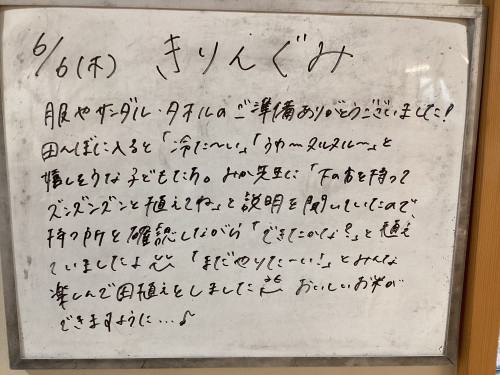 6/6(木) きりんぐみ
服やサンダル・タオルのご準備ありがとうございました!
田んぼに入ると「冷た〜い」「うわ〜ヌルヌル〜」と
嬉しそうな子どもたち。みか先生に「下の方を持って
ズンズンズンと植えてね」と説明を聞いていたので、
持つ所を確認しながら「できたかな?」と植え
ていましたよ 「まだやりたーい!」とみんな
楽しんで田植えをしました おいしいお米が
できますように…♪